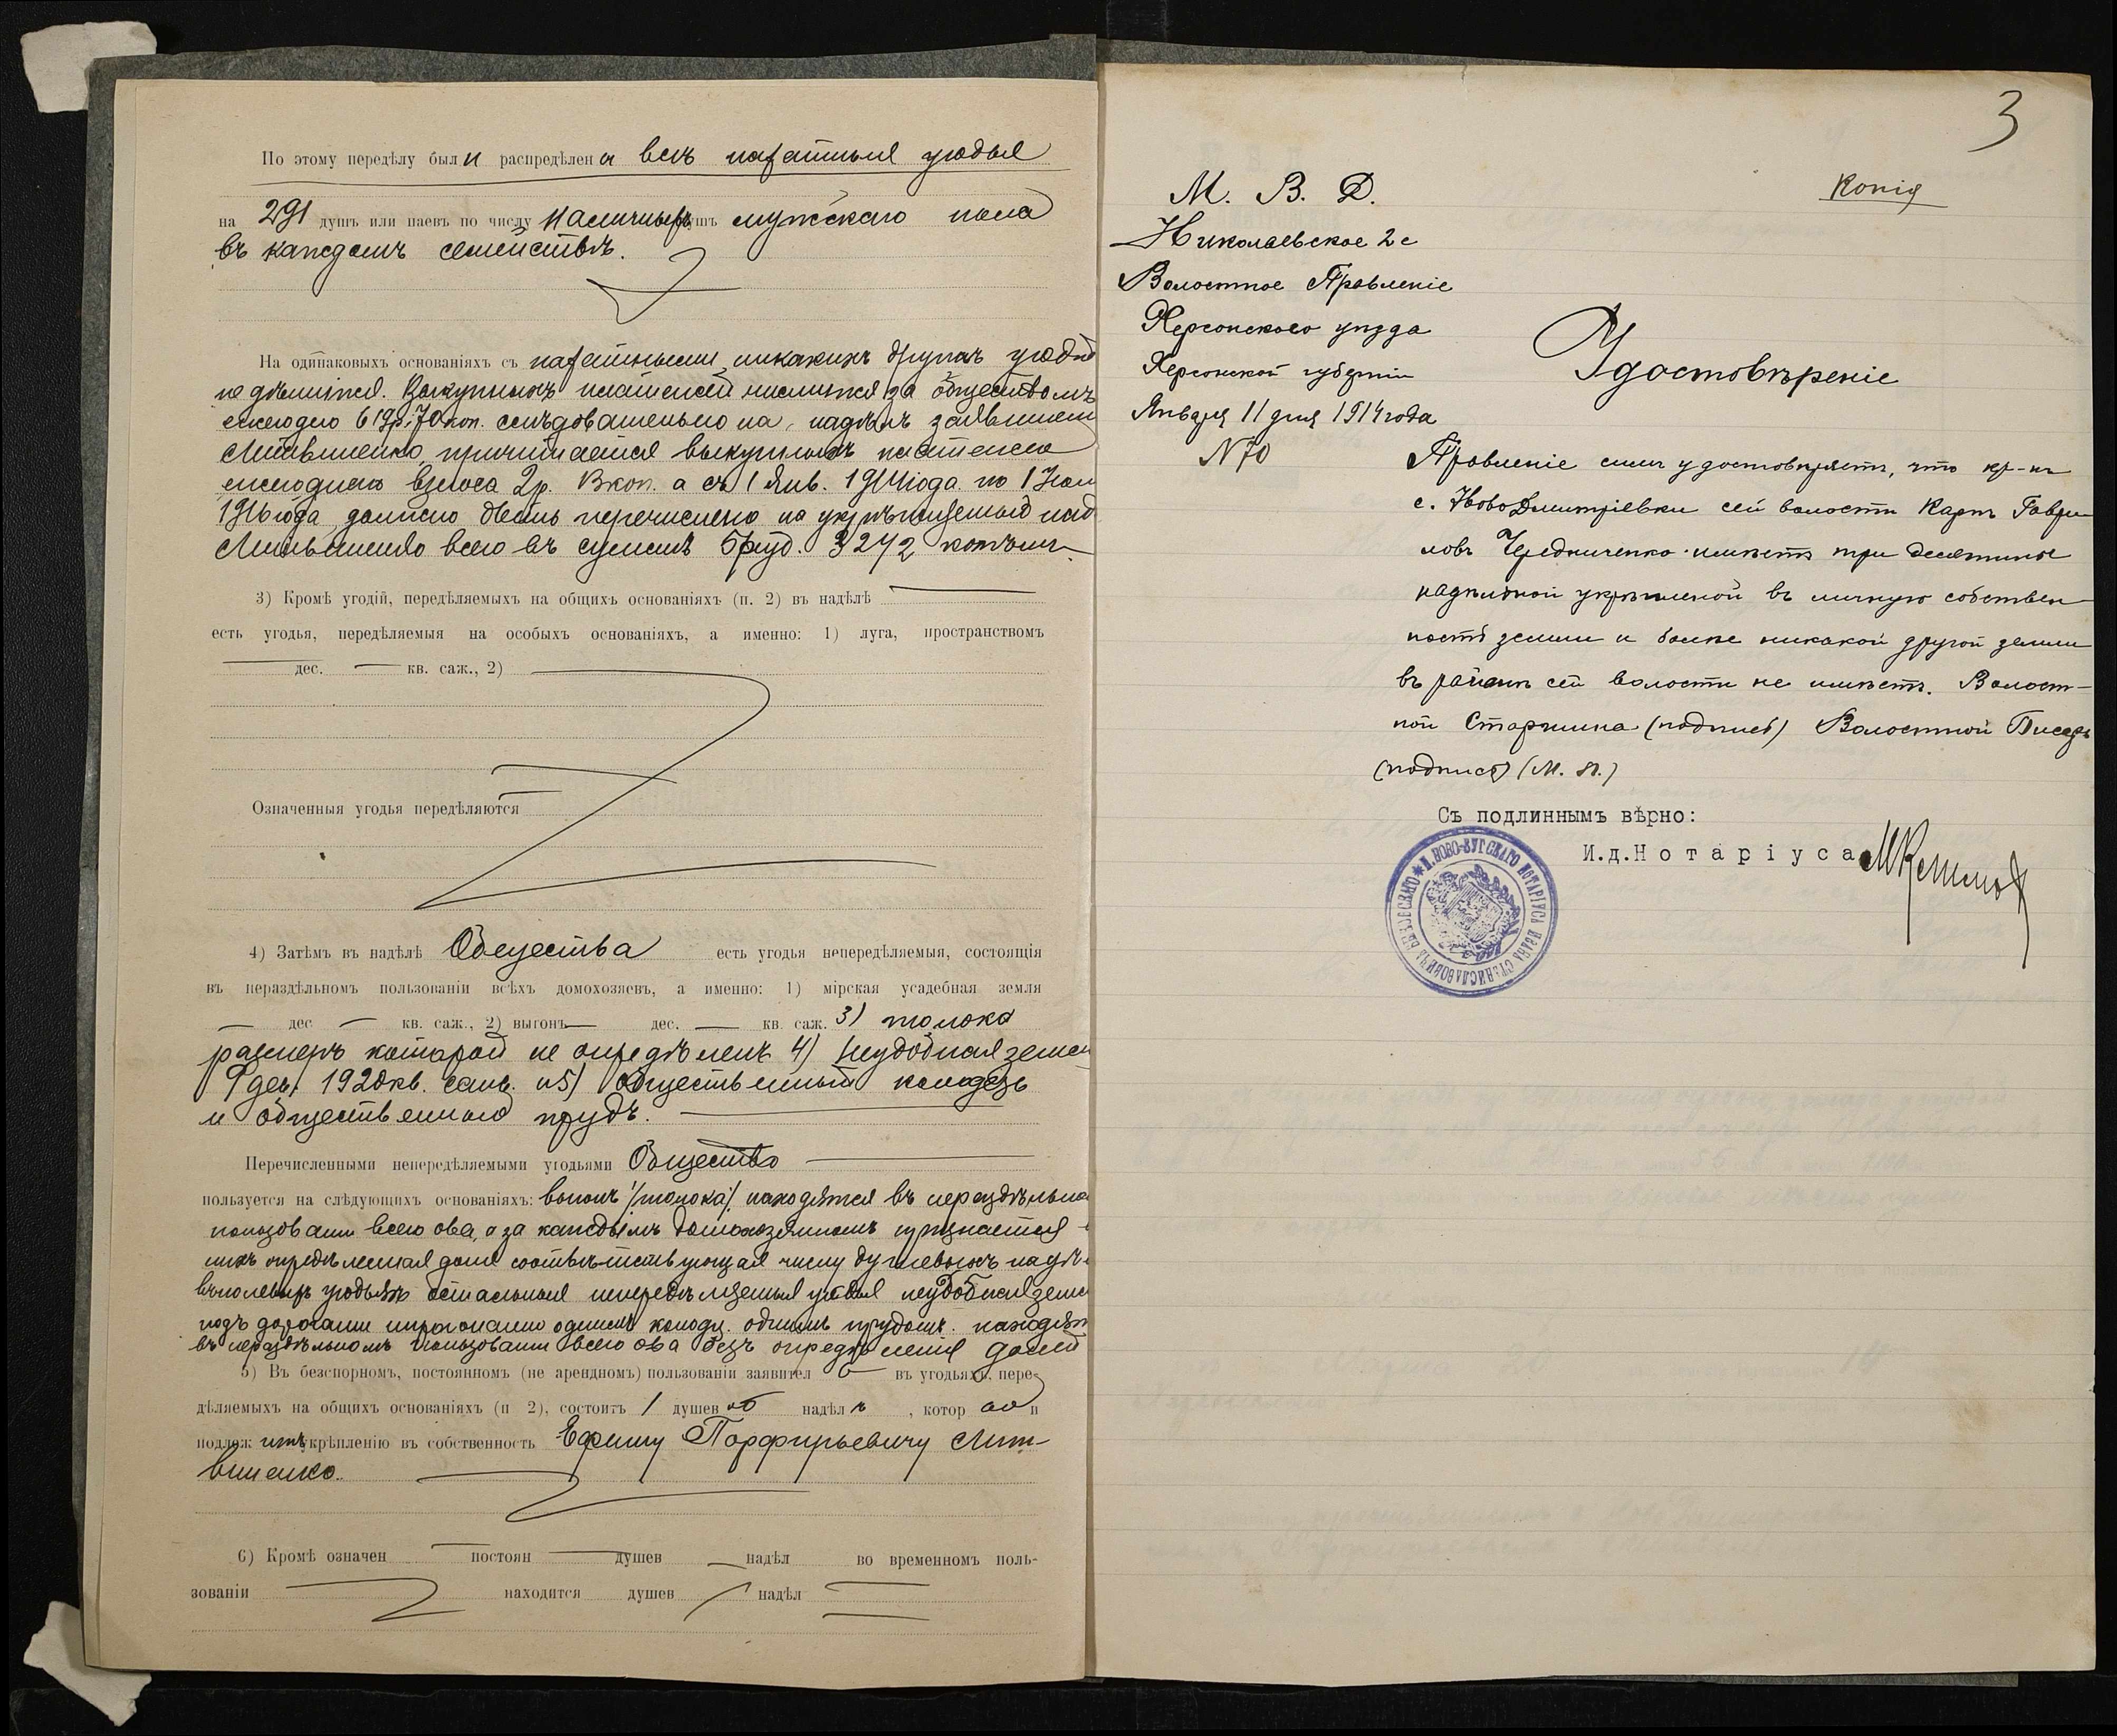 По этому передѣлу был и распредѣлен ы всѣ пахатныя угодья
на 291 душъ или паевъ по числу наличныхъ душъ мужскаго пола
въ каждомъ семействѣ.
На одинаковыхъ основаніяхъ съ пахатными никакихъ другихъ угодій
не дѣлится. Выкупныхъ платежей числится за обществомъ
ежегодно 619р. 70 коп. слѣдовательно на надѣлъ
Литвиненко, причитается выкупныхъ платежей
ежегоднаго взноса 2р. 13 коп. а съ 1 Янв. 1914 года по 1
1916 года должно быть перечислено на укрѣпляемый над
Литвиненко всего въ суммѣ
3) Кромѣ угодій, передѣляемыхъ на общихъ основаніяхъ (п. 2) въ надѣлѣ
есть угодья, передѣляемыя на особыхъ основаніяхъ, а именно: 1) луга, пространствомъ
— дес. — кв. саж., 2)
Означенныя угодья передѣляются
4) Затѣмъ въ надѣлѣ Общества есть угодья непередѣляемыя, состоящія
въ нераздѣльномъ пользованіи всѣхъ домохозяевъ, а именно: 1) мірская усадебная земля
— дес — кв. саж., 2) выгонъ — дес. — кв. саж. 3) толока
размеръ которой не опредѣленъ 4) неудобная земля
9 дес. 1920 кв. саж. и 5) общественный колодезь
и общественный прудъ.
Перечисленными непередѣляемыми угодьями Общество
пользуется на слѣдующихъ основаніяхъ: выгонъ /толока/ находятся въ нераздѣльно
пользованіи всего о-ва, а за каждымъ домохозяиномъ признается
нихъ опредѣленная доля соотвѣтствующая числу душевыхъ надѣ
въ полевыхъ угодьяхъ остальныя непередѣляемыя угодья неудобная земл
подъ дорогами однимъ колод. однимъ прудомъ находят
въ нераздѣльномъ пользованіи всего о-ва безъ опредѣленія долей
5) Въ безспорномъ, постоянномъ (не арендномъ) пользованіи заявител въ угодьяхъ, пере-
дѣляемыхъ на общихъ основаніяхъ (п 2), состоитъ 1 душев об надѣл ъ , котор ый и
подлежитъ укрѣпленію въ собственность Ефиму Порфирьевичу Лит-
виненко.
6) Кромѣ означен постоян душев надѣл во временномъ поль-
зованіи находится душев надѣл
3
Копія
М. В. Д.
Николаевское 2е
Волостное Правленіе
Херсонскаго уѣзда
Херсонской губерніи
Января 11 дня 1914 года
N 70
Удостовѣреніе
Правленіе симъ удостовѣряетъ, что кр-нъ
с. НовоДмитріевки сей волости Карпъ Гаври-
ловъ Чередниченко имѣетъ три десятины
надѣльной укрѣпленой въ личную собствен-
ность земли и болѣе никакой другой земли
въ районѣ сей волости не имѣетъ. Волост-
ной Старшина (подпись) Волостной Писарь
(подпись) (М. П.)
Съ подлиннымъ вѣрно:
И.д.Нотаріуса
Н.БУГСКАГО НОТАРІУСА ИВАНА СТАНИСЛАВОВИЧА